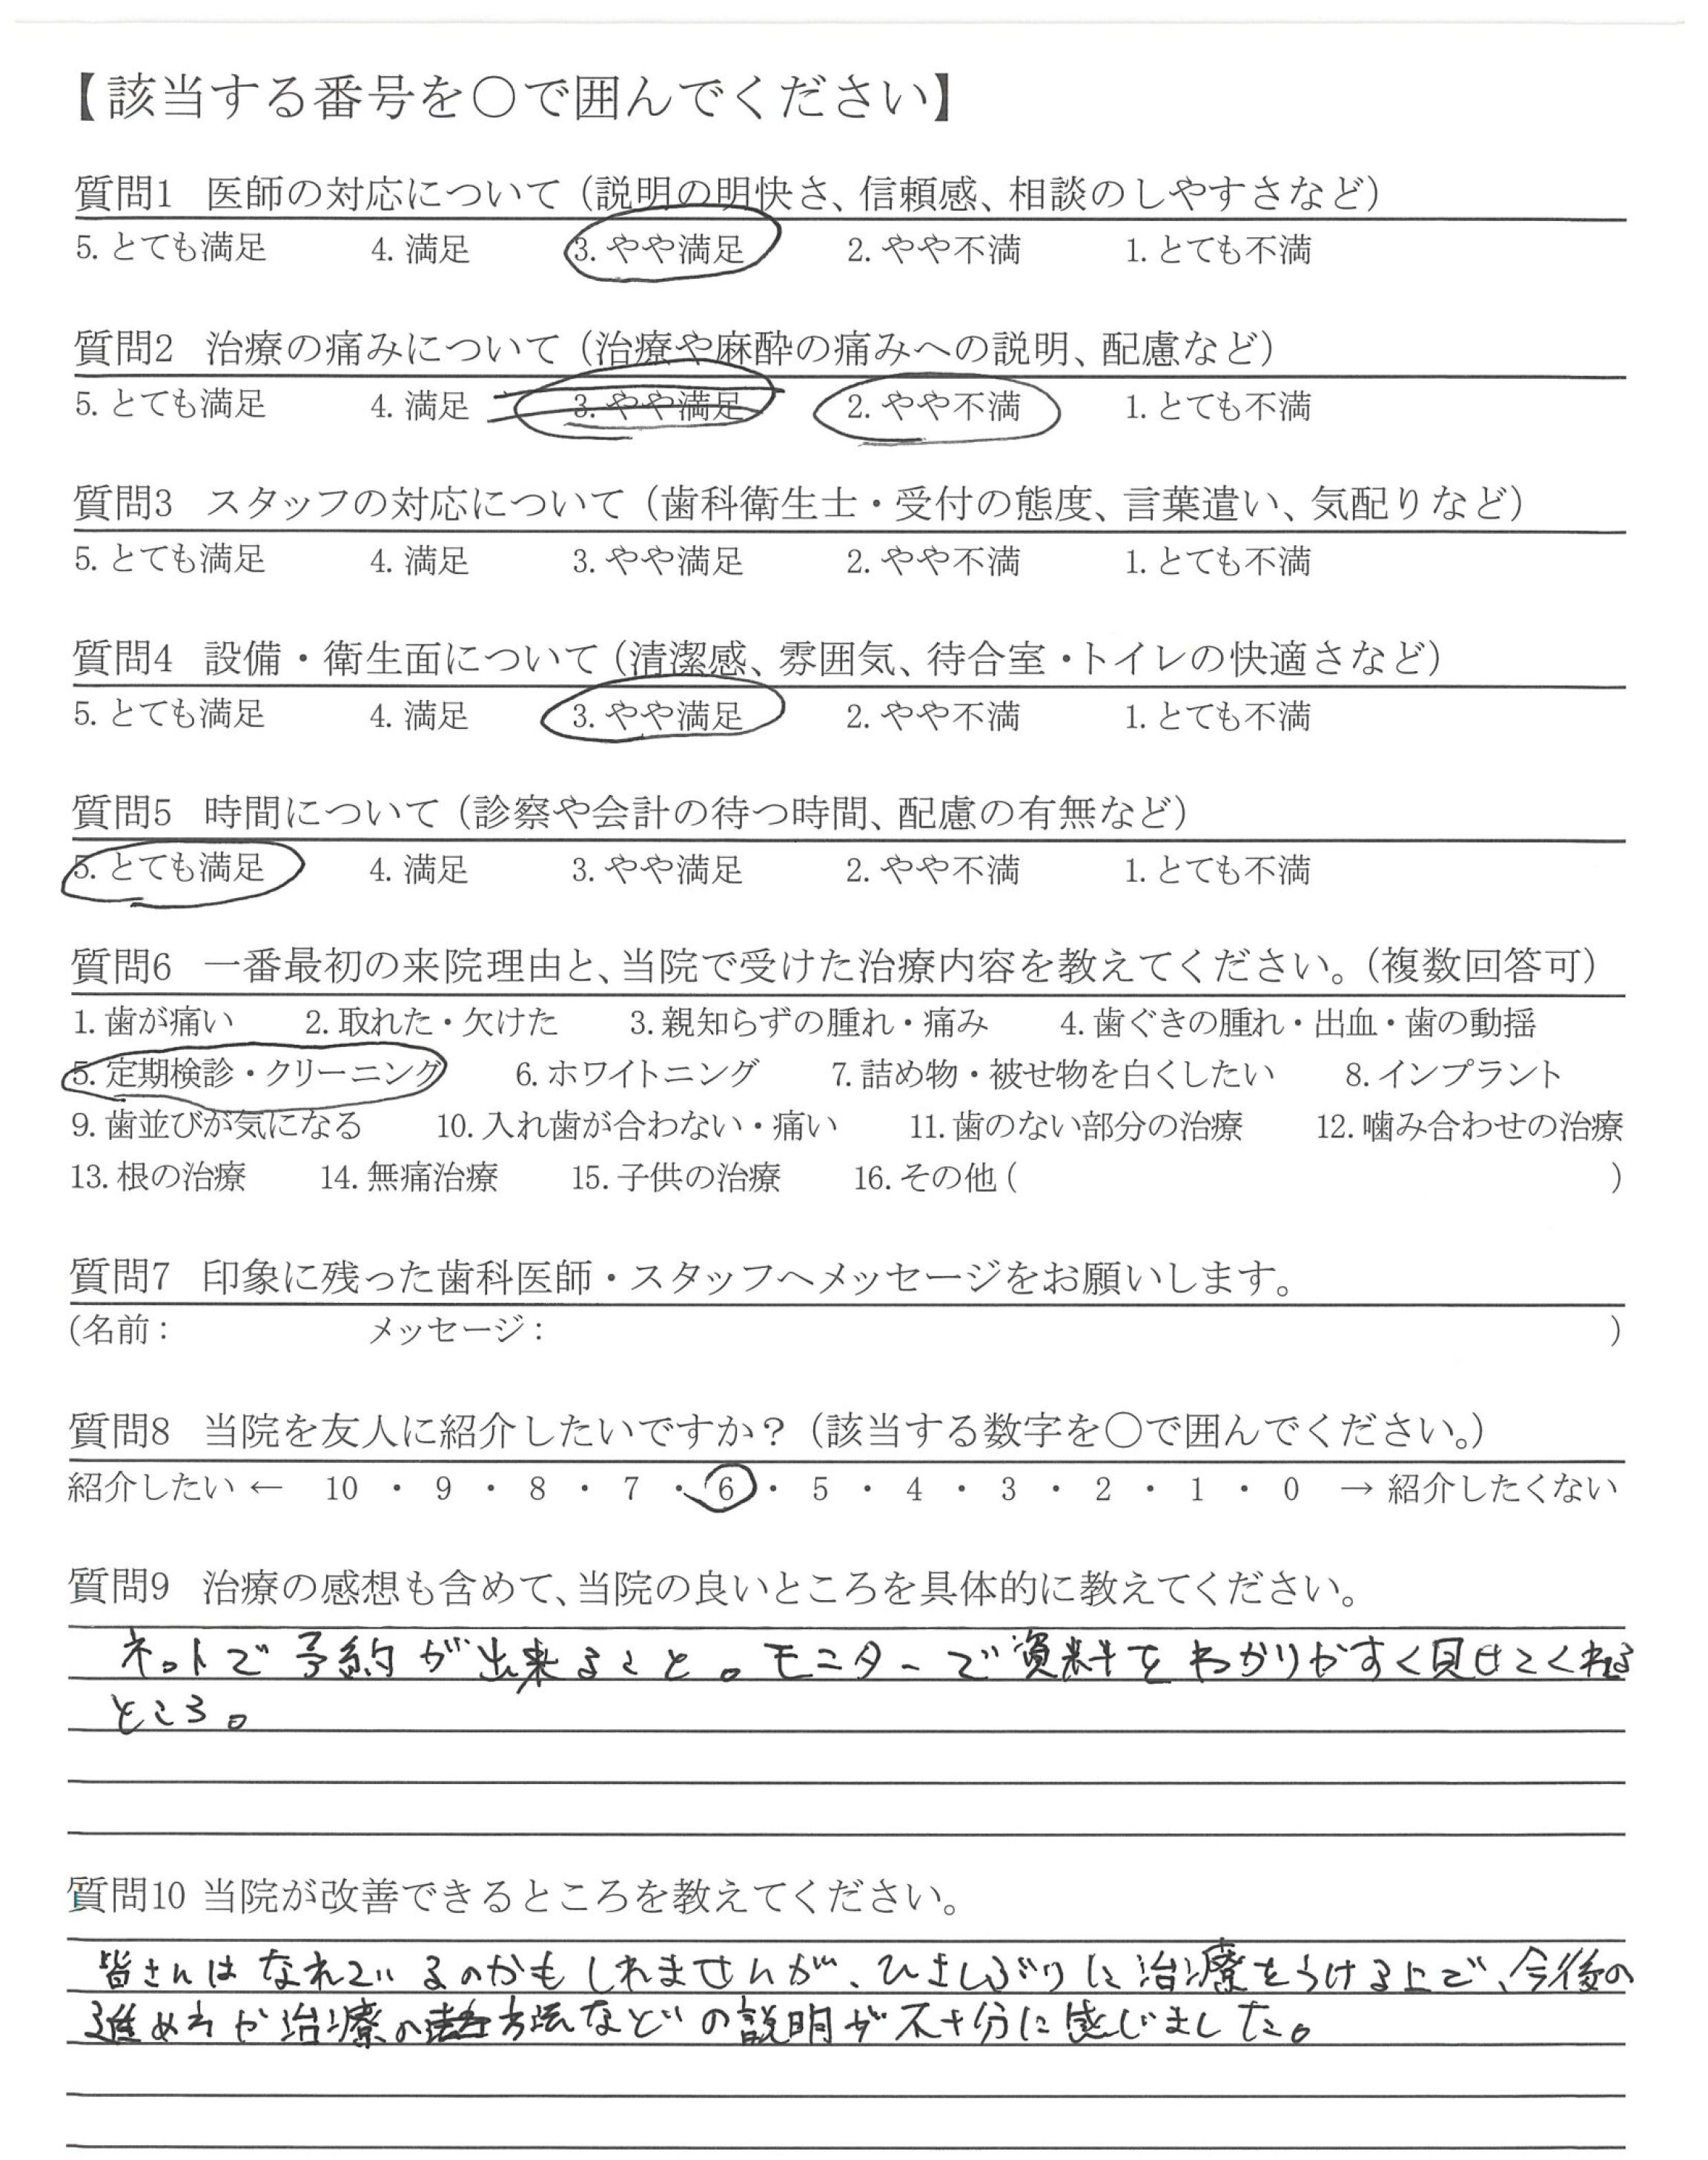 【該当する番号を〇で囲んでください】
質問1 医師の対応について（説明の明快さ、信頼感、相談のしやすさなど）
5. とても満足 4. 満足 3. やや満足 2. やや不満 1. とても不満
質問2 治療の痛みについて（治療や麻酔の痛みへの説明、配慮など）
5. とても満足 4. 満足 3. やや満足 2. やや不満 1. とても不満
質問3 スタッフの対応について（歯科衛生士・受付の態度、言葉遣い、気配りなど）
5. とても満足 4. 満足 3. やや満足 2. やや不満 1. とても不満
質問4 設備・衛生面について（清潔感、雰囲気、待合室・トイレの快適さなど）
5. とても満足 4. 満足 3. やや満足 2. やや不満 1. とても不満
質問5 時間について（診察や会計の待つ時間、配慮の有無など）
5. とても満足 4. 満足 3. やや満足 2. やや不満 1. とても不満
質問6 一番最初の来院理由と、当院で受けた治療内容を教えてください。（複数回答可）
1. 歯が痛い 2. 取れた・欠けた 3. 親知らずの腫れ・痛み 4. 歯ぐきの腫れ・出血・歯の動揺
5. 定期検診・クリーニング 6. ホワイトニング 7. 詰め物・被せ物を白くしたい 8. インプラント
9. 歯並びが気になる 10. 入れ歯が合わない・痛い 11. 歯のない部分の治療 12. 噛み合わせの治療
13. 根の治療 14. 無痛治療 15. 子供の治療 16. その他 ( )
質問7 印象に残った歯科医師・スタッフへメッセージをお願いします。
(名前： メッセージ： )
質問8 当院を友人に紹介したいですか？（該当する数字を〇で囲んでください。）
紹介したい ← 10 ・ 9 ・ 8 ・ 7 ・ 6 ・ 5 ・ 4 ・ 3 ・ 2 ・ 1 ・ 0 → 紹介したくない
質問9 治療の感想も含めて、当院の良いところを具体的に教えてください。
ネットで予約が出来ること。モニターで資料をわかりやすく見せてくれる
ところ。
質問10 当院が改善できるところを教えてください。
皆さんはなれているのかもしれませんが、ひさしぶりに治療をうける上で、今後の
進め方や治療の方法などの説明が不十分に感じました。